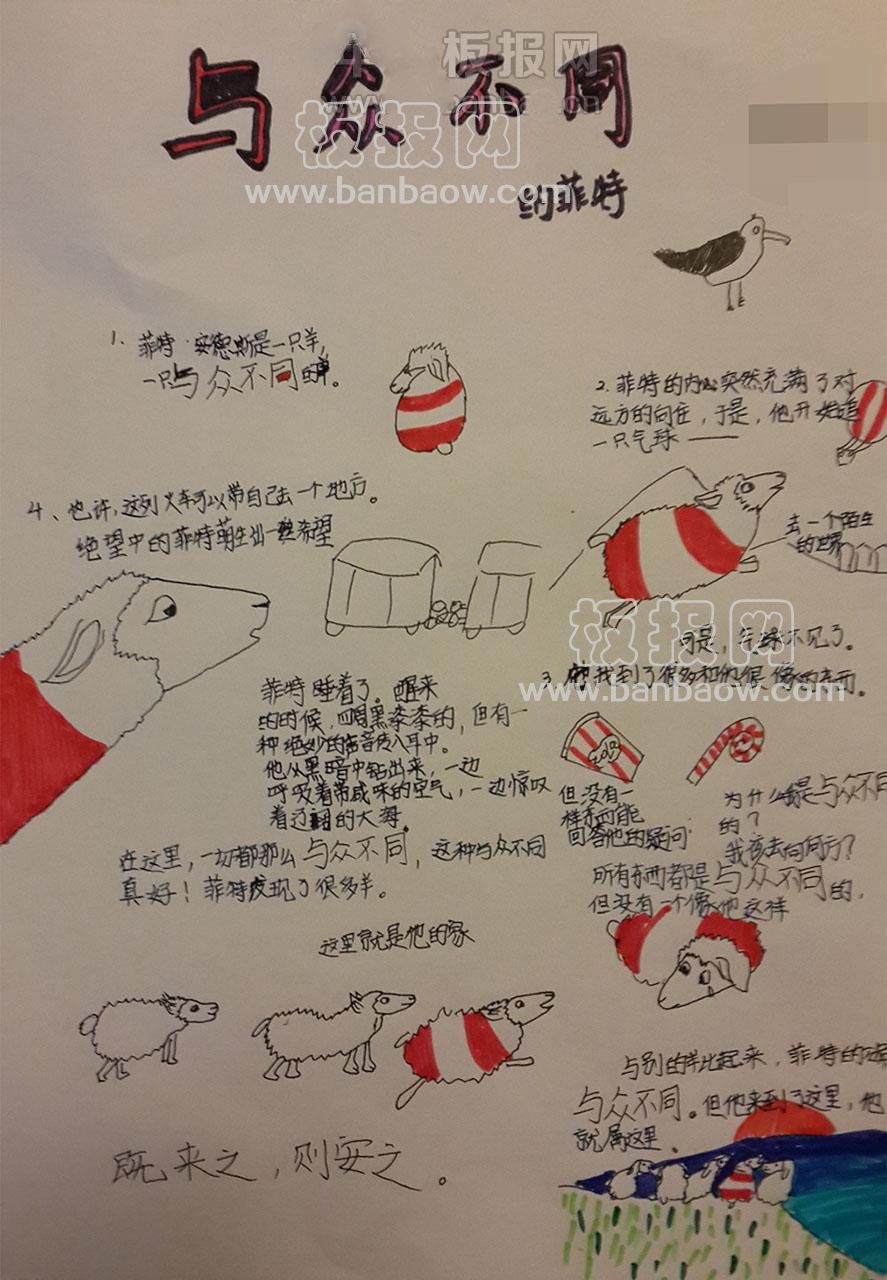 与众不同
的菲特
板报网
www.banbaow.com
1. 菲特·安德斯是一只羊,
一只与众不同的羊。
2. 菲特的内心突然充满了对
远方的向往，于是，他开始追
一只气球——
去一个陌生
的世界
可是，气球不见了。
3. 他找到了很多和他很像的东西。
但没有一
样东西能
回答他的疑问
为什么我是与众不同
的？
我该去向何方？
所有东西都是与众不同的，
但没有一个像他这样
4、也许，这列火车可以带自己去一个地方。
绝望中的菲特萌生出一丝希望
菲特睡着了。醒来
的时候，四周黑漆漆的，但有一
种绝妙的声音传入耳中。
他从黑暗中钻出来，一边
呼吸着带咸味的空气，一边惊叹
着辽阔的大海。
在这里，一切都那么与众不同，这种与众不同
真好！菲特发现了很多羊。
这里就是他的家
与别的羊比起来，菲特的确
与众不同。但他来到了这里，他
就属这里。
既来之，则安之。
板报网
www.banbaow.com
板报网
www.banbaow.com